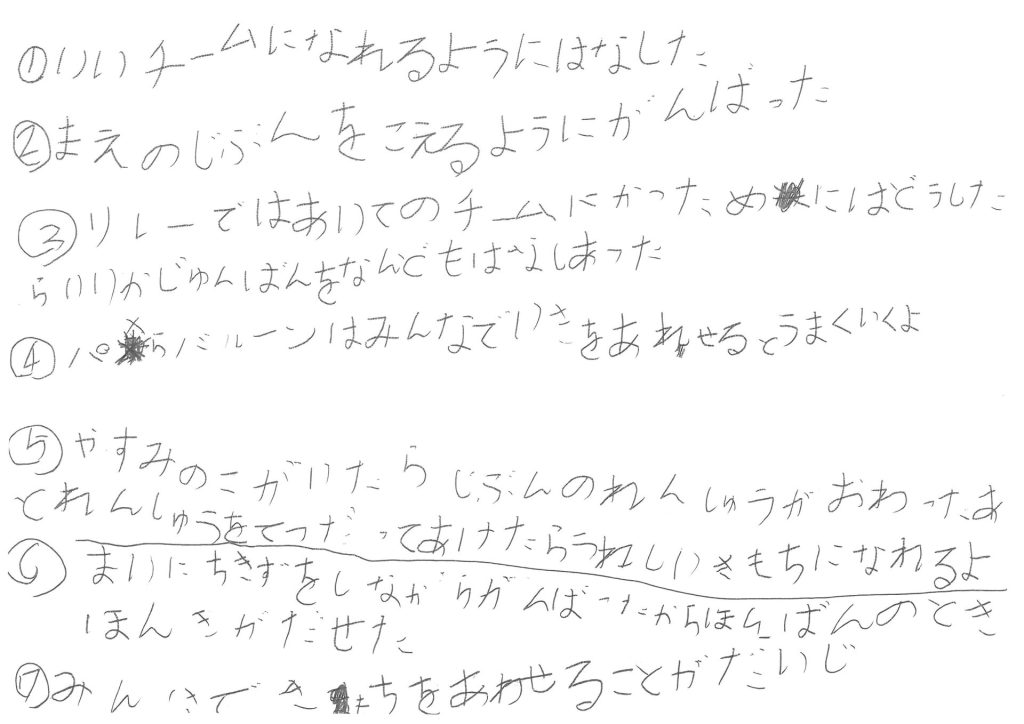 ①いいチームになれるようにはなした
②まえのじぶんをこえるようにがんばった
③リレーではあいてのチームにかったためにはどうした
らいいかじゅんばんをなんどもはなしあった
④パらバルーンはみんなでいきをあわせるとうまくいくよ
⑤やすみのこがいたらじぶんのれんしゅうがおわったあ
とれんしゅうをてつだってあげたらうれしいきもちになれるよ
⑥まいにちきずをしながらがんばったからほんばんのとき
ほんきがだせた
⑦みんなでき ちをあわせることがだいじ